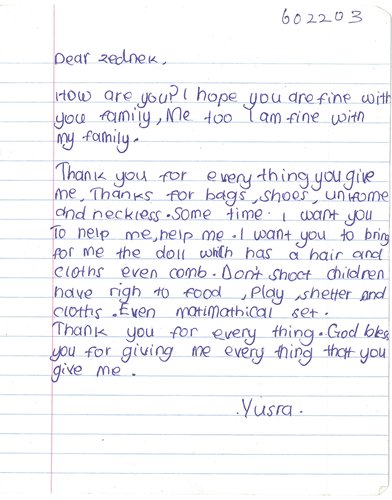 602203
Dear zednek,
How are you? I hope you are fine with
you family, Me too I am fine with
my family.
Thank you for every thing you give
me, Thanks for bags, shoes, unifome
and neckless. Some time. I want you
To help me, help me. I want you to bring
for me the doll which has a hair and
cloths even comb. Dont shoct children
have righ to food, Play, shetter and
cloths. Even matimathical set.
Thank you for every thing. God bles
you for giving me every thing that you
give me.
.Yusra.